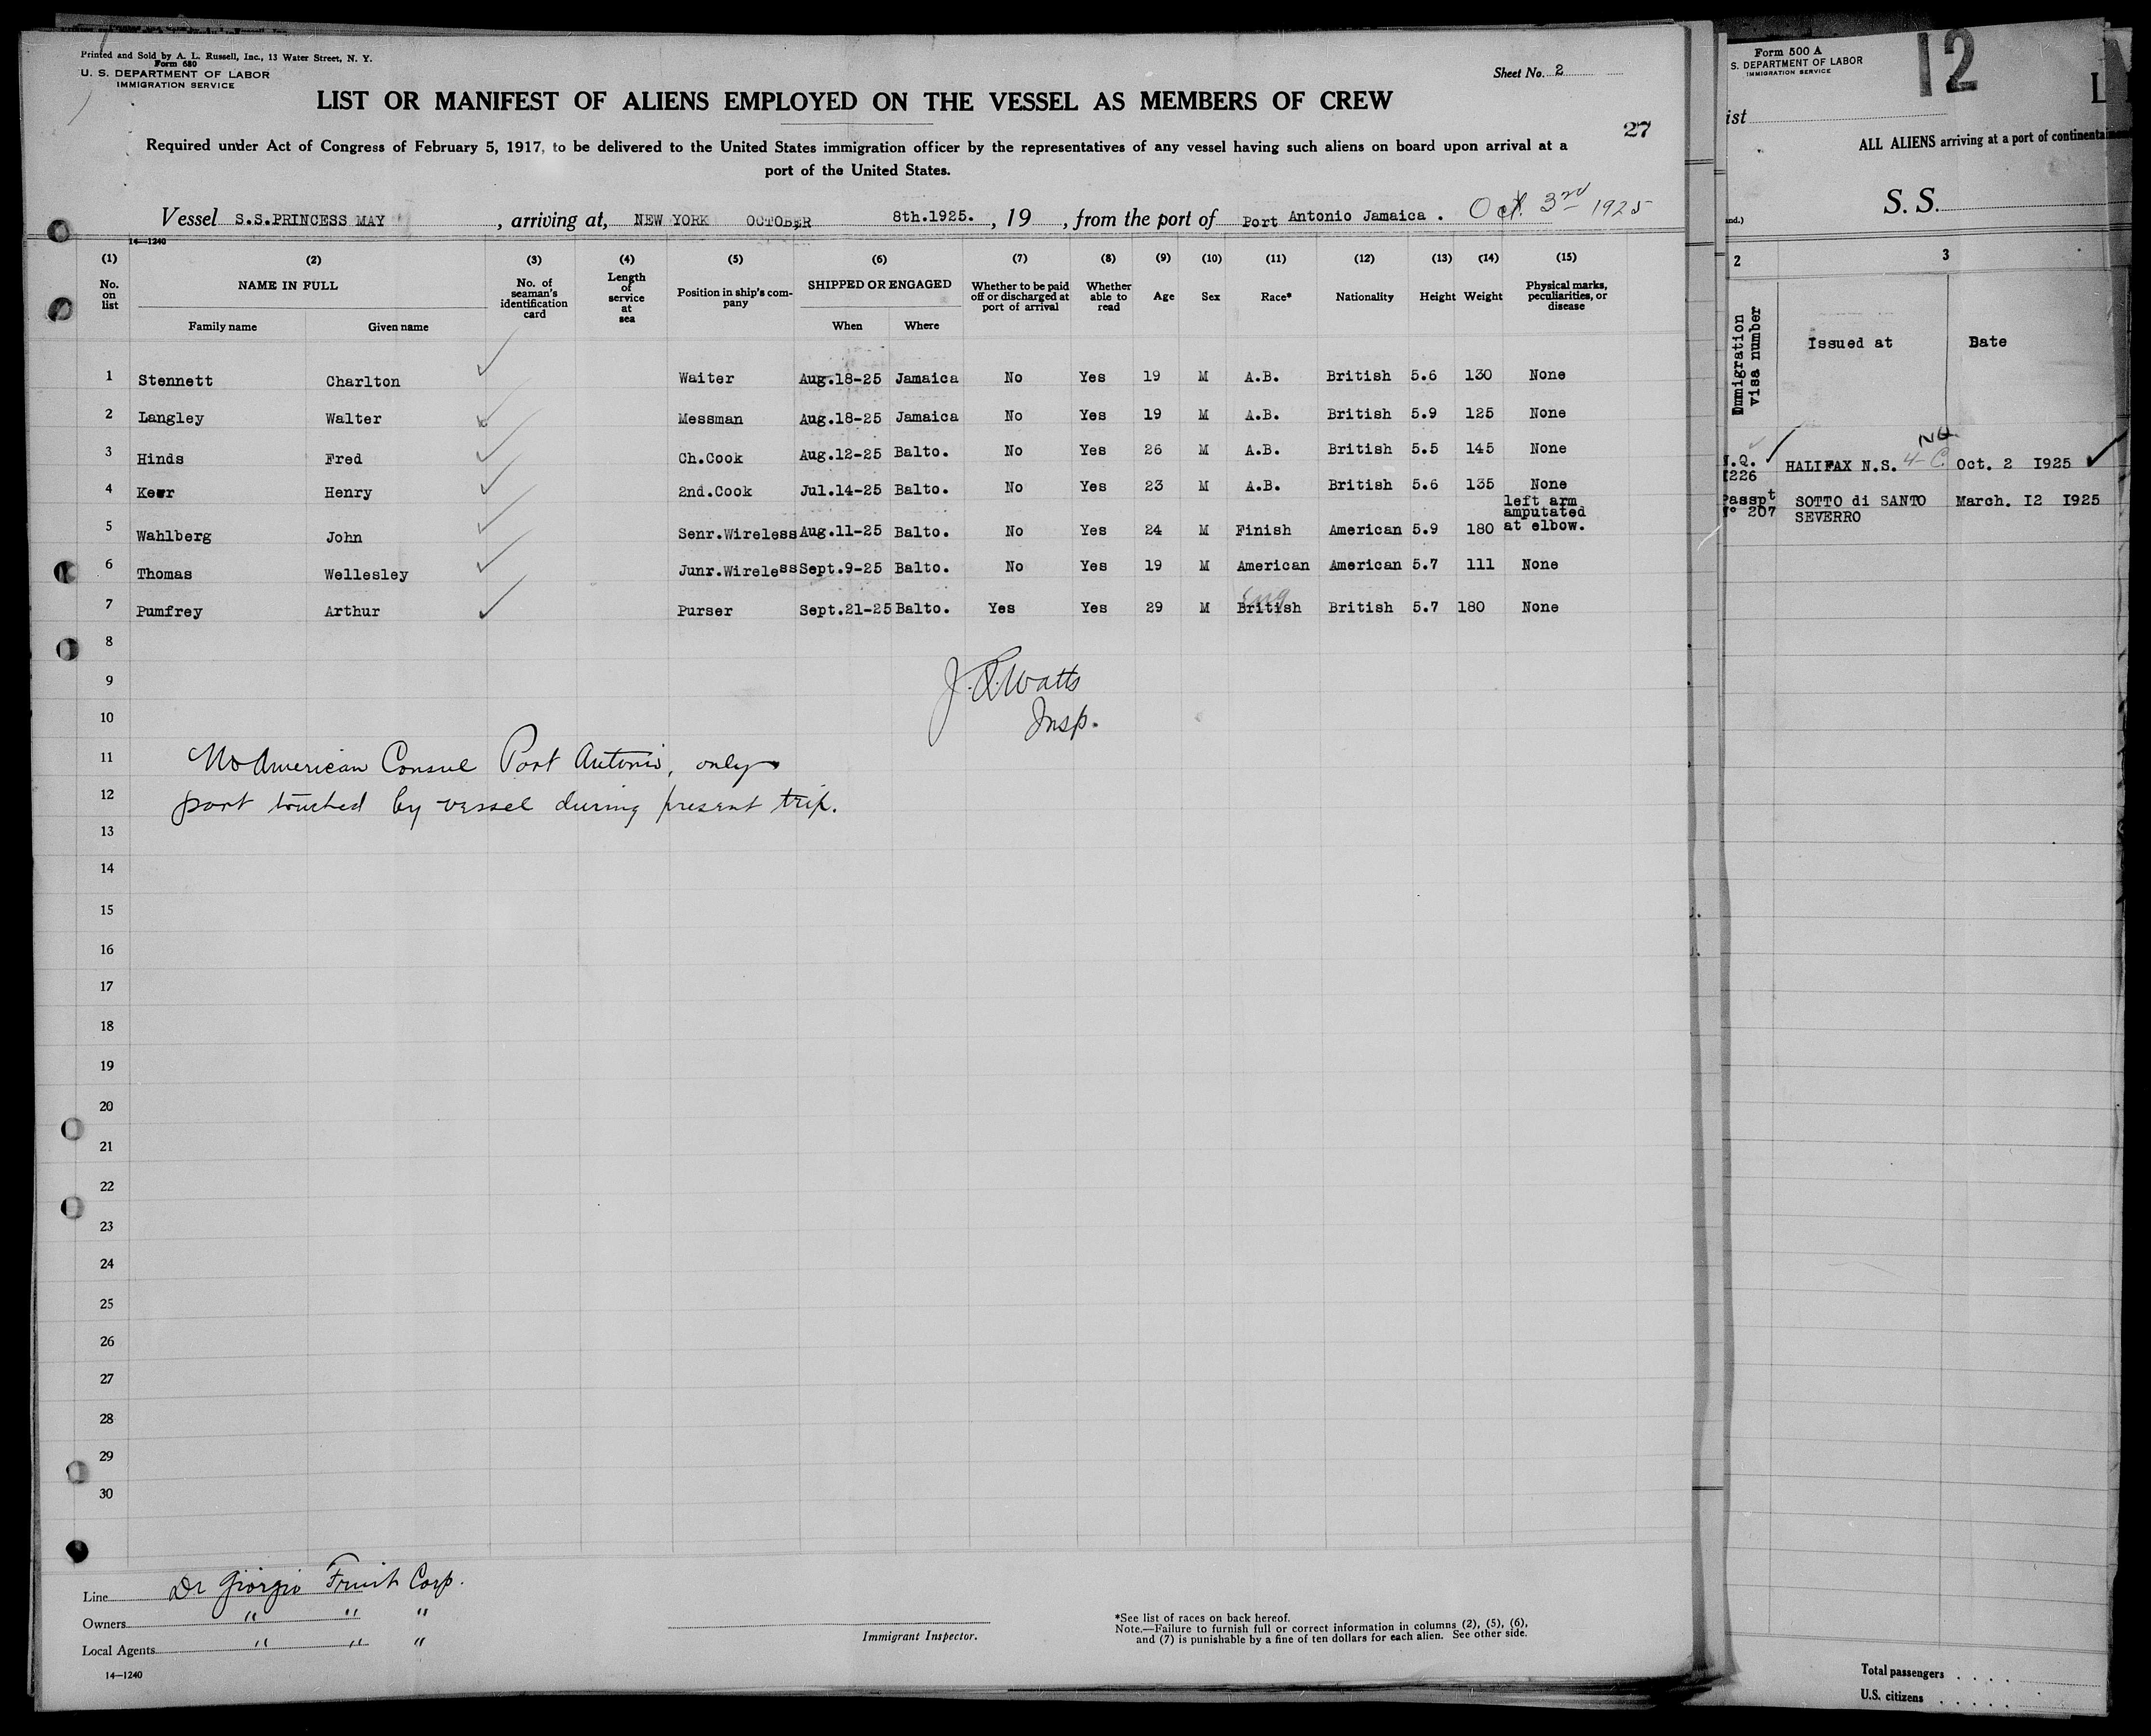 Printed and Sold by A. L. Russell, Inc., 13 Water Street, N. Y.
Form 680
U. S. DEPARTMENT OF LABOR
IMMIGRATION SERVICE
Sheet No. 2
LIST OR MANIFEST OF ALIENS EMPLOYED ON THE VESSEL AS MEMBERS OF CREW
27
Required under Act of Congress of February 5, 1917, to be delivered to the United States immigration officer by the representatives of any vessel having such aliens on board upon arrival at a
port of the United States.
Vessel S.S.PRINCESS MAY, arriving at, NEW YORK OCTOBER 8th.1925., 19, from the port of Port Antonio Jamaica. Oct. 3rd 1925
14—1240
(1) (2) (3) (4) (5) (6) (7) (8) (9) (10) (11) (12) (13) (14) (15)
No. on list
NAME IN FULL
Family name Given name
No. of seaman's identification card
Length of service at sea
Position in ship's company
SHIPPED OR ENGAGED
When Where
Whether to be paid off or discharged at port of arrival
Whether able to read
Age Sex Race* Nationality Height Weight
Physical marks, peculiarities, or disease
1 Stennett Charlton Waiter Aug.18-25 Jamaica No Yes 19 M A.B. British 5.6 130 None
2 Langley Walter Messman Aug.18-25 Jamaica No Yes 19 M A.B. British 5.9 125 None
3 Hinds Fred Ch.Cook Aug.12-25 Balto. No Yes 26 M A.B. British 5.5 145 None
4 Kerr Henry 2nd.Cook Jul.14-25 Balto. No Yes 23 M A.B. British 5.6 135 None
left arm
amputated
5 Wahlberg John Senr.Wireless Aug.11-25 Balto. No Yes 24 M Finish American 5.9 180 at elbow.
6 Thomas Wellesley Junr.Wireless Sept.9-25 Balto. No Yes 19 M American American 5.7 111 None
Eng
7 Pumfrey Arthur Purser Sept.21-25 Balto. Yes Yes 29 M British British 5.7 180 None
8
9
J.R.Watts
10
Insp.
11 No American Consul Port Antonio, only
12 port touched by vessel during present trip.
13
14
15
16
17
18
19
20
21
22
23
24
25
26
27
28
29
30
Line Di Giorgio Fruit Corp.
Owners " " "
Local Agents " " "
14—1240
Immigrant Inspector.
*See list of races on back hereof.
Note.—Failure to furnish full or correct information in columns (2), (5), (6),
and (7) is punishable by a fine of ten dollars for each alien. See other side.
Form 500 A
S. DEPARTMENT OF LABOR
IMMIGRATION SERVICE
12
L
ist
ALL ALIENS arriving at a port of continenta
S. S.
and.)
2 3
Immigration visa number
Issued at Date
N.Q.
1226
HALIFAX N.S. 4-C. Oct. 2 1925
Passpt
Nº 207
SOTTO di SANTO March. 12 1925
SEVERRO
Total passengers
U.S. citizens